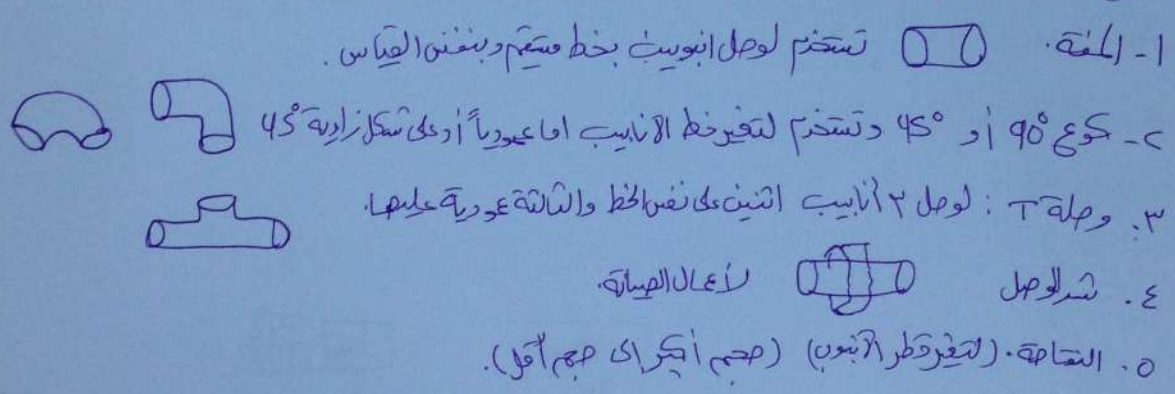 ١- المفة. تستخدم لوصل انبوبين بخط مستقيم وبنفس القياس.
٢- كوع 90° أو 45° وتستخدم لتغير خط الانابيب اما عمودياً أو على شكل زاوية 45°
٣. وصلة T : لوصل ٣ أنابيب اثنين على نفس الخط والثالثة عمودية عليها.
٤. شد الوصل لأعمال الصيانة.
٥. النقاصة. (لتغير قطر الأنبوب) (حجم أكبر الى حجم أقل).